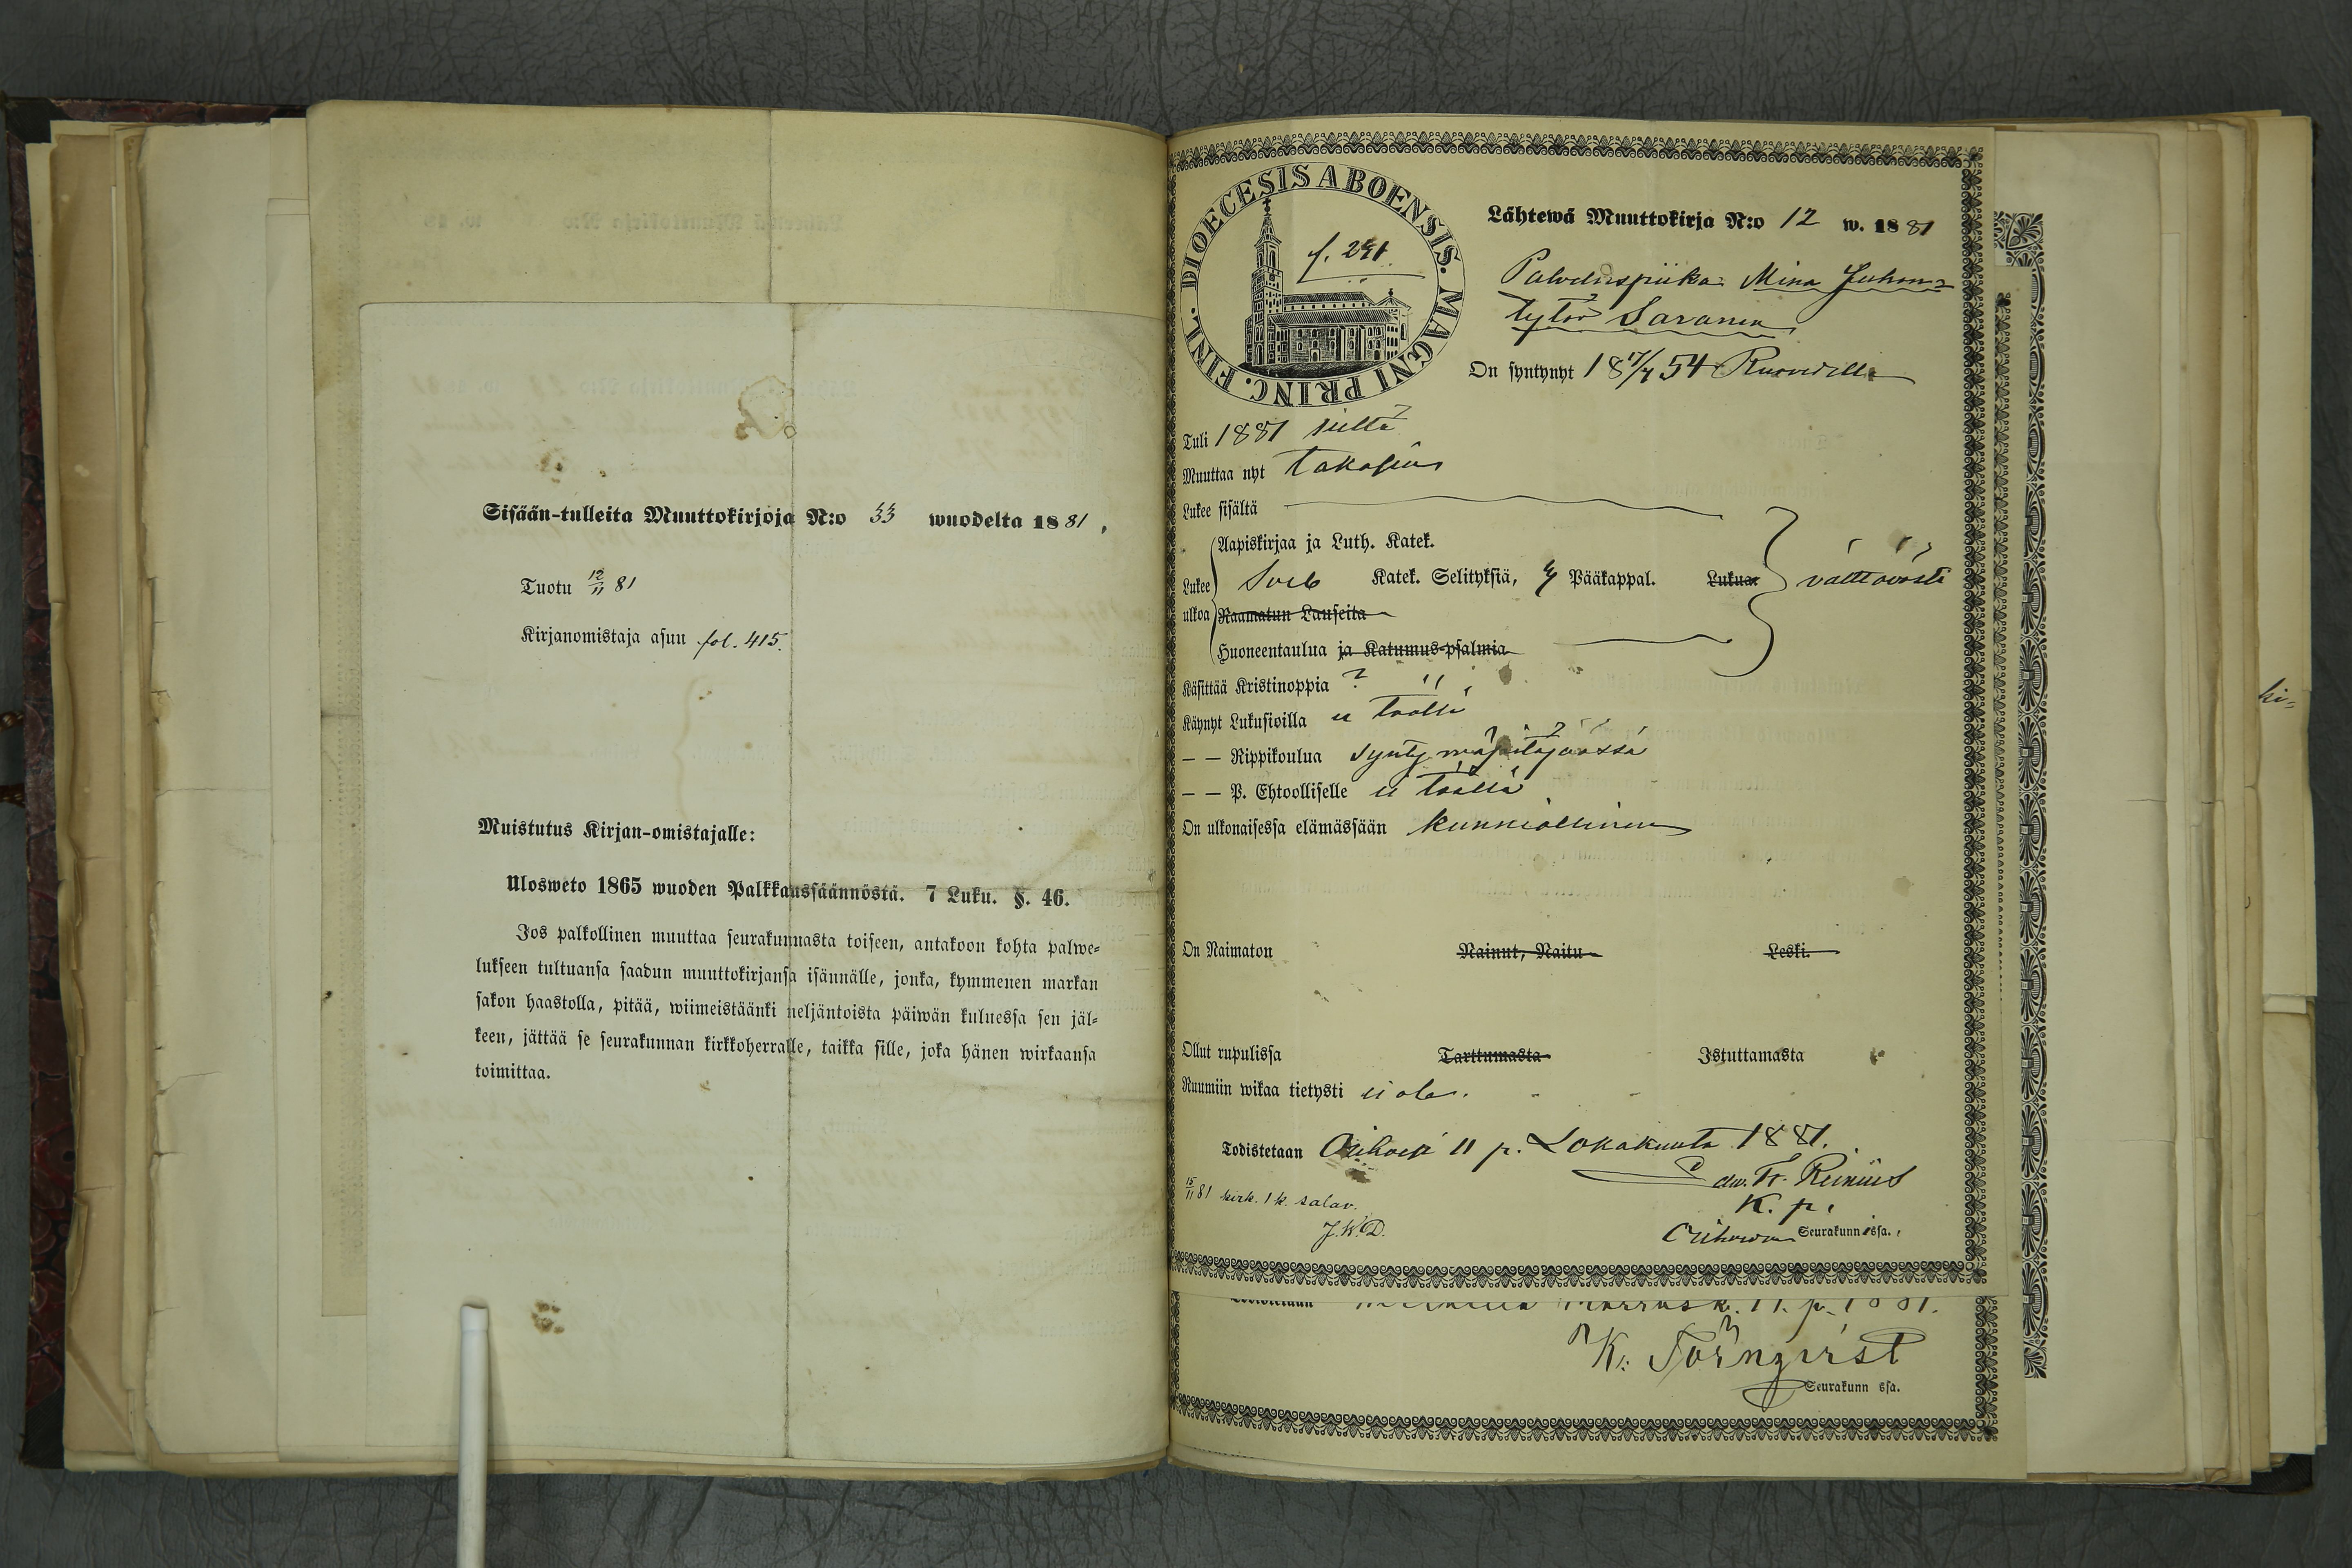 Sisään-tulleita Muuttokirjoja N:o 33 wuodelta 1881,
Tuotu 12/11 81
Kirjanomistaja asuu fol. 415.
Muistutus Kirjan-omistajalle:
Ulosweto 1865 wuoden Palkkaussäännöstä. 7 Luku. §. 46.
Jos palkollinen muuttaa seurakunnasta toiseen, antakoon kohta palwe-
lukseen tultuansa saadun muuttokirjansa isännälle, jonka, kymmenen markan
sakon haastolla, pitää, wiimeistäänki neljäntoista päiwän kuluessa sen jäl-
keen, jättää se seurakunnan kirkkoherralle, taikka sille, joka hänen wirkaansa
toimittaa.
DIOECESIS ABOENSIS. MAGNI PRINC. FINL.
f. 291
Lähtewä Muuttokirja N:o 12 w. 1881
Palveluspiika Mina Juhon-
tytär Saranen
On syntynyt 18 17/4 54 Ruovedellä
Tuli 1881 sieltä
Muuttaa nyt takasin
Lukee sisältä
Aapiskirjaa ja Luth. Katek.
Lukee ulkoa Sveb Katek. Selityksiä, 4 Pääkappal. Lukua välttävästi
Raamatun Lauseita
Huoneentaulua ja Katumus-psalmia
Käsittää Kristinoppia ?
Käynyt Lukusioilla ei täällä
— — Rippikoulua syntymäpitäjässä
— — P. Ehtoolliselle ei täällä
On ulkonaisessa elämässään kunniallinen
On Naimaton Nainut, Naitu Leski.
Ollut rupulissa Tarttumasta Istuttamasta
Ruumiin wikaa tietysti ei ole.
Todistetaan Orihvesi 11 p. Lokakuuta 1881.
Fr. Reinius
15/11 81 kirk. 1 k. salav.
K. p.
J.W.D.
Orihveden Seurakunnissa.
11. p. 1881.
K. Törnqvist
Seurakunn ssa.
ki=